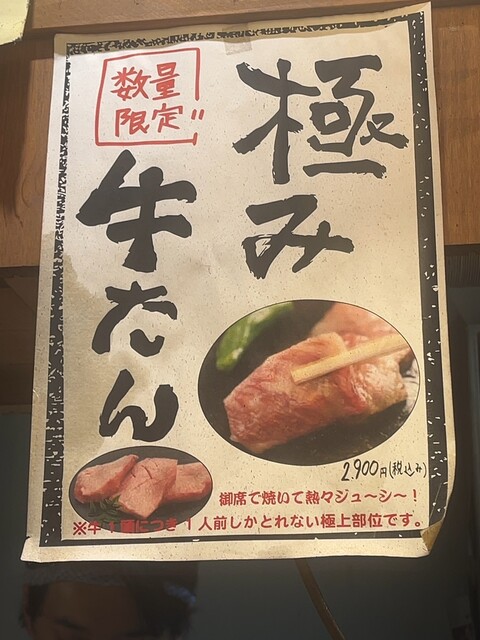 極み
数量
限定
牛たん
2,900円(税込み)
御席で焼いて熱々ジュ〜シ〜！
※牛1頭につき1人前しかとれない極上部位です。